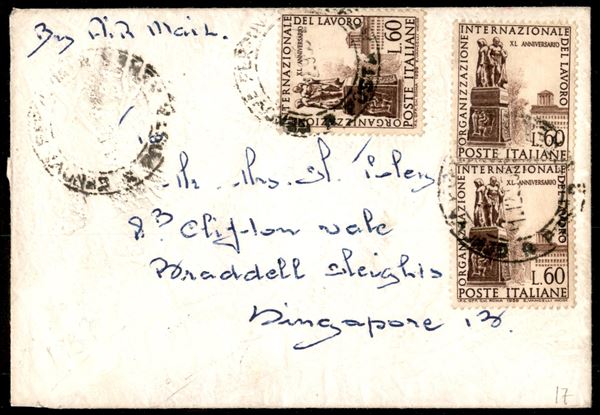 By AIR MAIL.
ORGANIZZAZIONE INTERNAZIONALE DEL LAVORO
XL ANNIVERSARIO
L.60
POSTE ITALIANE
ORGANIZZAZIONE INTERNAZIONALE DEL LAVORO
XL ANNIVERSARIO
L.60
POSTE ITALIANE
ORGANIZZAZIONE INTERNAZIONALE DEL LAVORO
XL ANNIVERSARIO
L.60
POSTE ITALIANE
Mr Mrs.
Clifton vale
Braddell Heights
Singapore 13.
17